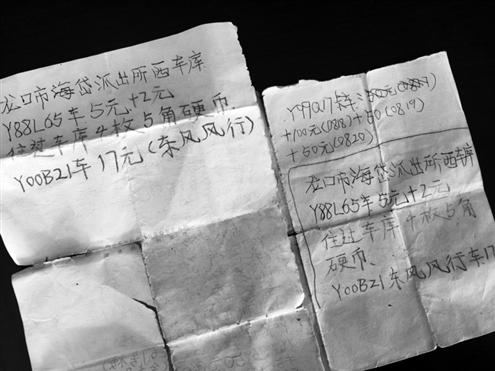 龙口市海岱派出所西车库
Y88L65车5元+2元
住过车库4枚5角硬币
Y00B21车17元(东风风行)
+100元(0818)+50(0819)
+50元(0820)
龙口市海岱派出所西车库
Y88L65车5元+2元
住过车库4枚5角
硬币、
Y00B21东风风行车17